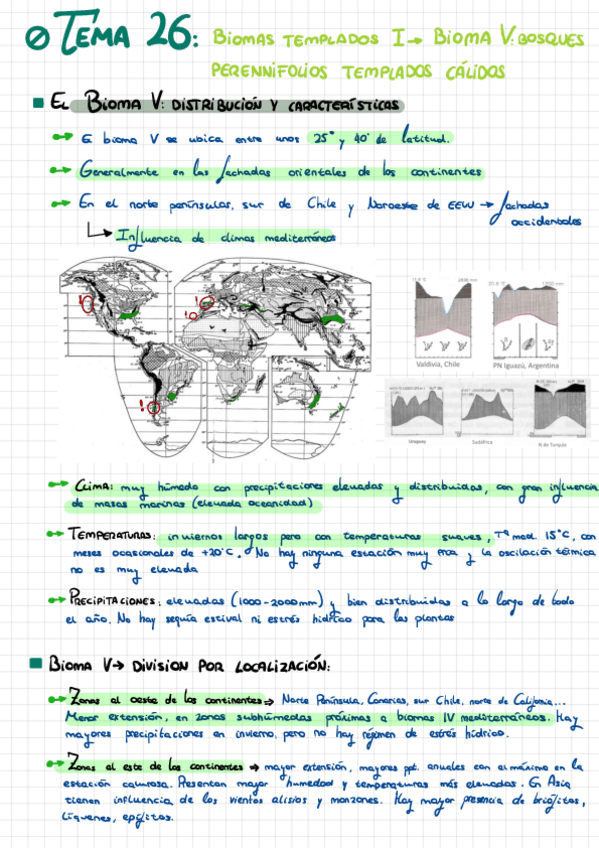 TEMA 26: BIOMAS TEMPLADOS I → BIOMA V: BOSQUES
PERENNIFOLIOS TEMPLADOS CÁLIDOS
EL BIOMA V: DISTRIBUCIÓN Y CARACTERÍSTICAS
E bioma V se ubica entre unos 25° y 40° de latitud.
Generalmente en las fachadas orientales de los continentes
En el norte penínsulas, sur de Chile y Noroeste de EEUU → fachadas
occidentales
Influencia de climas mediterráneos
Valdivia, Chile
PN Iguazú, Argentina
Uruguay
Sudáfrica
N de Turquía
CLIMA: muy húmedo con precipitaciones elevadas y distribuidas, con gran influencia
de masas marinas (elevada oceanidad)
TEMPERATURAS: inviernos largos pero con temperaturas suaves, Tª med. 15°C, con
meses ocasionales de +20°C. No hay ninguna estación muy fría y la oscilación térmica
no es muy elevada
PRECIPITACIONES: elevadas (1000-2000mm) y bien distribuidas a lo largo de todo
el año. No hay sequía estival ni estrés hídrico para las plantas
BIOMA V → DIVISION POR LOCALIZACIÓN:
Zonas al oeste de los continentes → Norte Península, Canarias, sur Chile, norte de California...
Menor extensión, en zonas subhúmedas próximas a biomas IV mediterráneos. Hay
mayores precipitaciones en invierno, pero no hay régimen de estrés hídrico.
Zonas al este de los continentes → mayor extensión, mayores ppt. anuales con el máximo en la
estación calurosa. Presentan mayor humedad y temperaturas más elevadas. En Asia
tienen influencia de los vientos alisios y monzones. Hay mayor presencia de briófitos,
líquenes, epífitos.